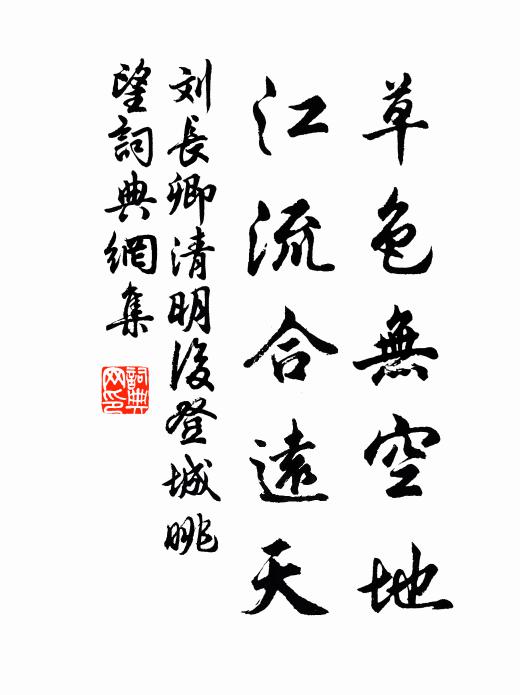 草色無空地
江流合遠天
刘長卿清明後登城眺
望詞典網集
詞典
网印